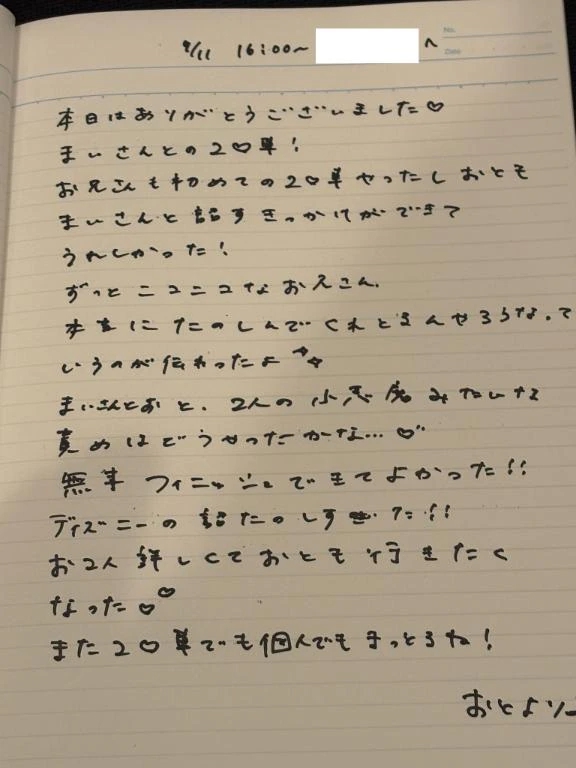 9/11 16:00~ へ
No.
Date
本日はありがとうございました♡
まいさんとの2♡単!
お兄さんも初めての2♡単やったしおとも
まいさんと話すきっかけができて
うれしかった!
ずっとニコニコなお兄さん、
本当にたのしんでくれとるんやろうなって
いうのが伝わったよ
まいさんとおと、2人の小悪魔みたいな
責めはどうやったかな…♡
無事フィニッシュできてよかった!!
ディズニーの話たのしすぎた!!
お2人詳しくておとも行きたく
なった♡♡
また2♡単でも個人でもまっとるね!
おとよりー